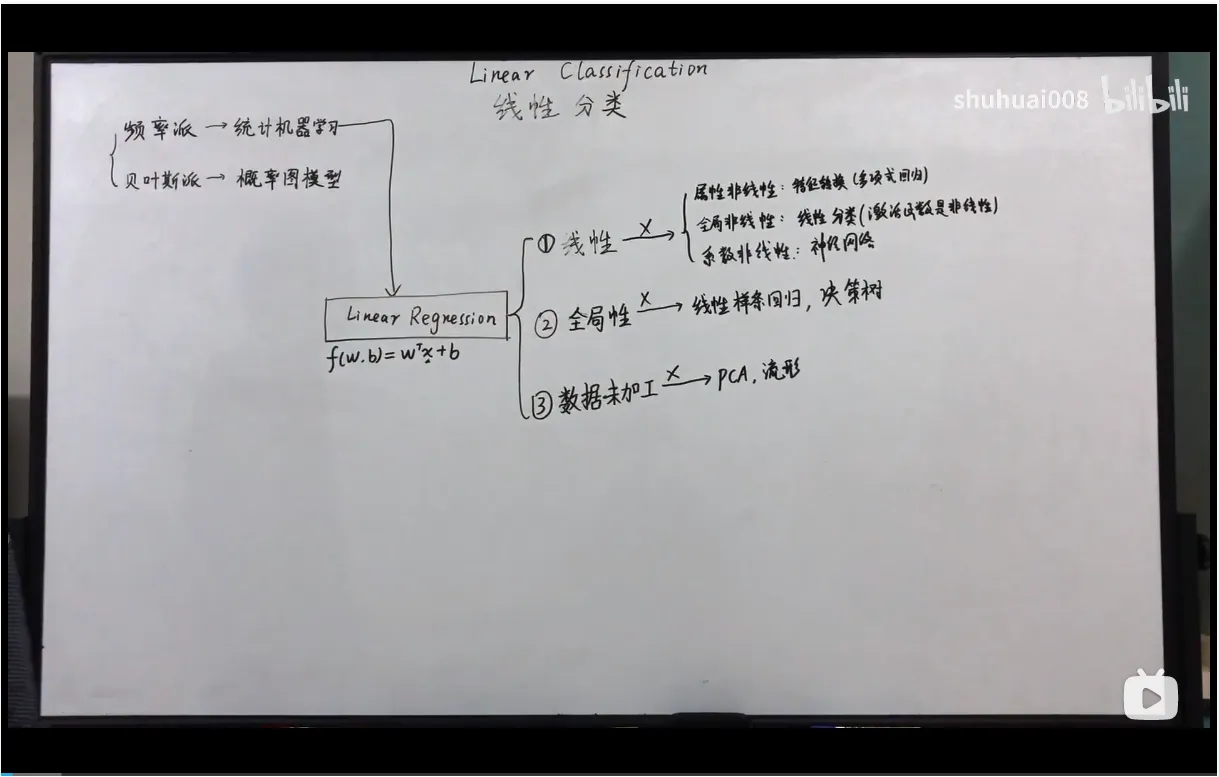 Linear Classification
线性分类
shuhuai008 bilibili
频率派 → 统计机器学习
贝叶斯派 → 概率图模型
Linear Regression
f(w.b)=wᵀx+b
① 线性 X→
属性非线性：特征转换(多项式回归)
全局非线性：线性分类(激活函数是非线性)
系数非线性：神经网络
② 全局性 X→ 线性样条回归，决策树
③ 数据未加工 X→ PCA，流形